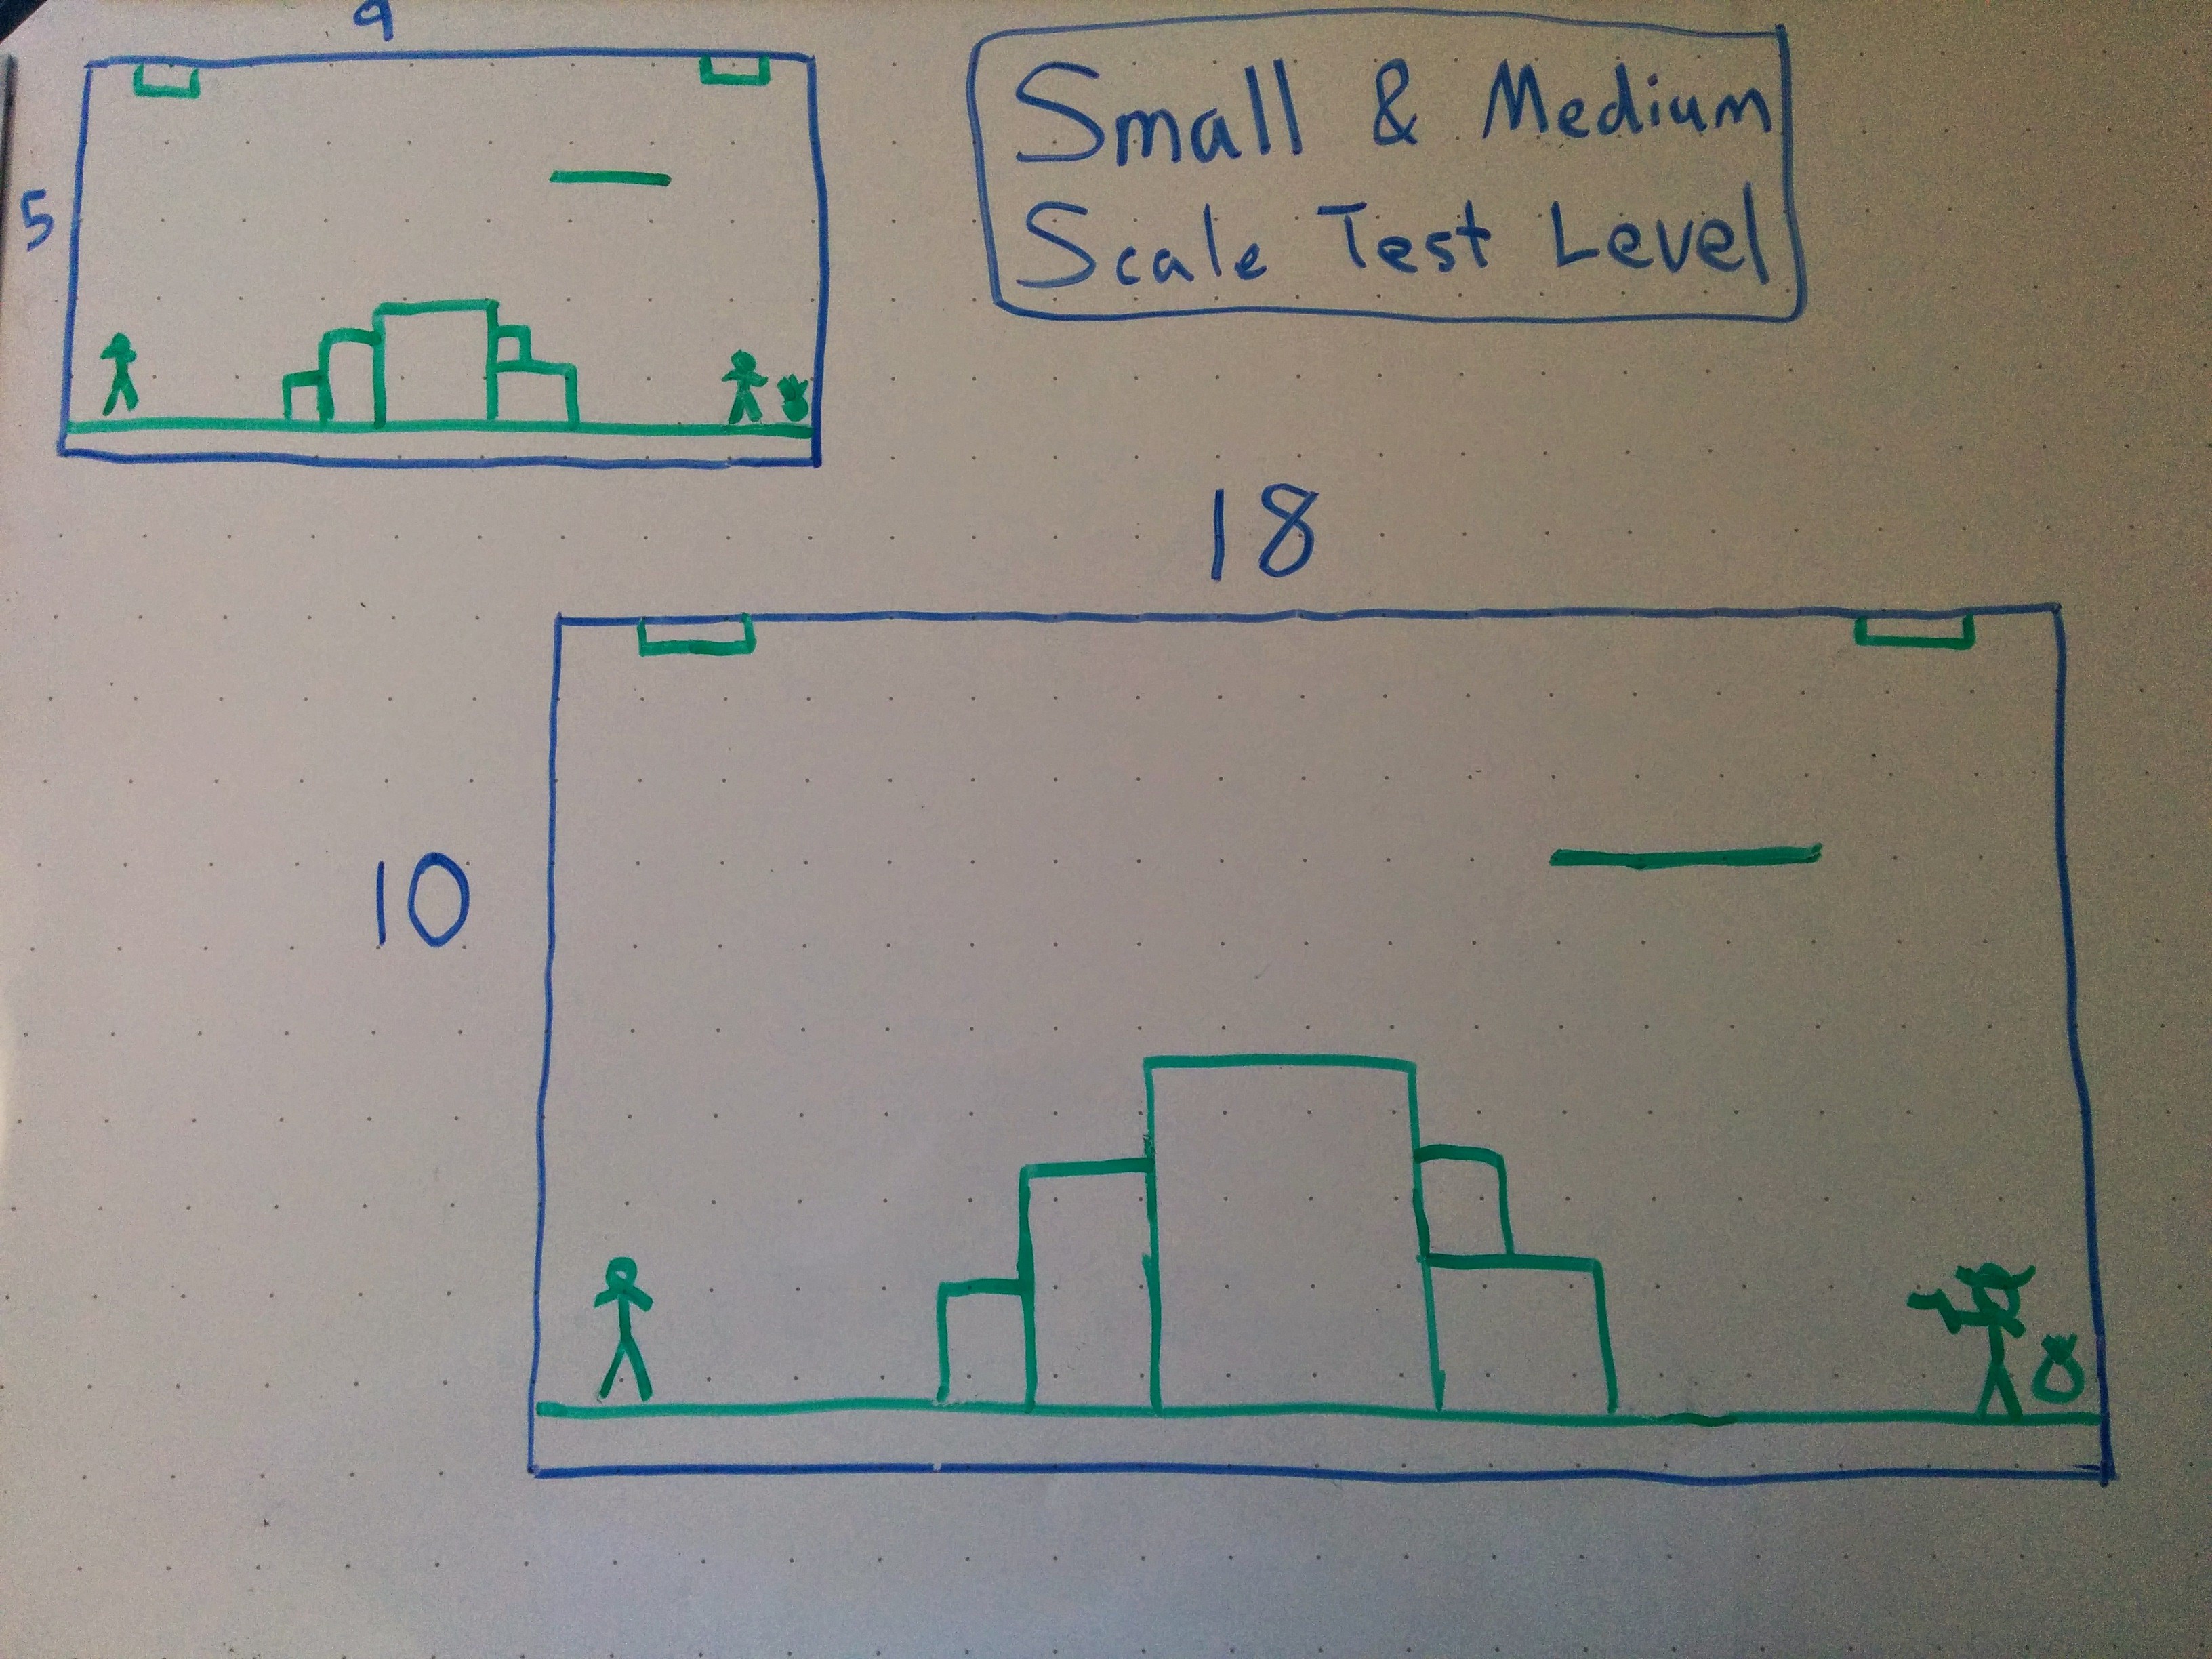 9
Small & Medium
Scale Test Level
5
18
10